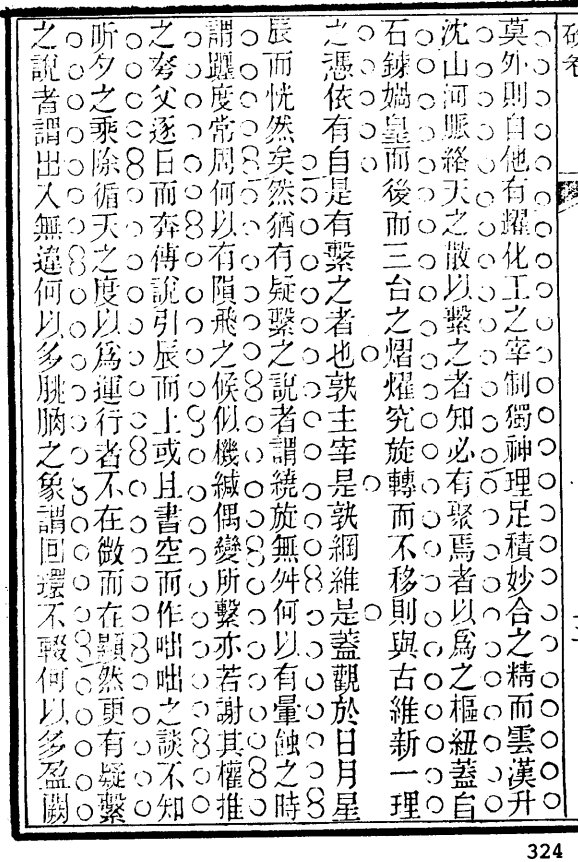 莫外則自他有耀化工之宰制獨神理足積妙合之精而雲漢升
沈山河脈絡天之散以繫之者知必有聚焉者以爲之樞紐蓋自
石鍊媧皇而後而三台之熠燿究旋轉而不移則與古維新一理
之憑依有自是有繫之者也孰主宰是孰綱維是蓋觀於日月星
辰而恍然矣然猶有疑繫之說者謂繞旋無舛何以有暈蝕之時
謂躔度常周何以有隕飛之候似機緘偶變所繫亦若謝其權推
之夸父逐日而奔傅說引辰而上或且書空而作咄咄之談不知
所夕之乘除循天之度以爲運行者不在微而在顯然更有疑繫
之說者謂出入無違何以多朓朒之象謂回還不輟何以多盈闕
324